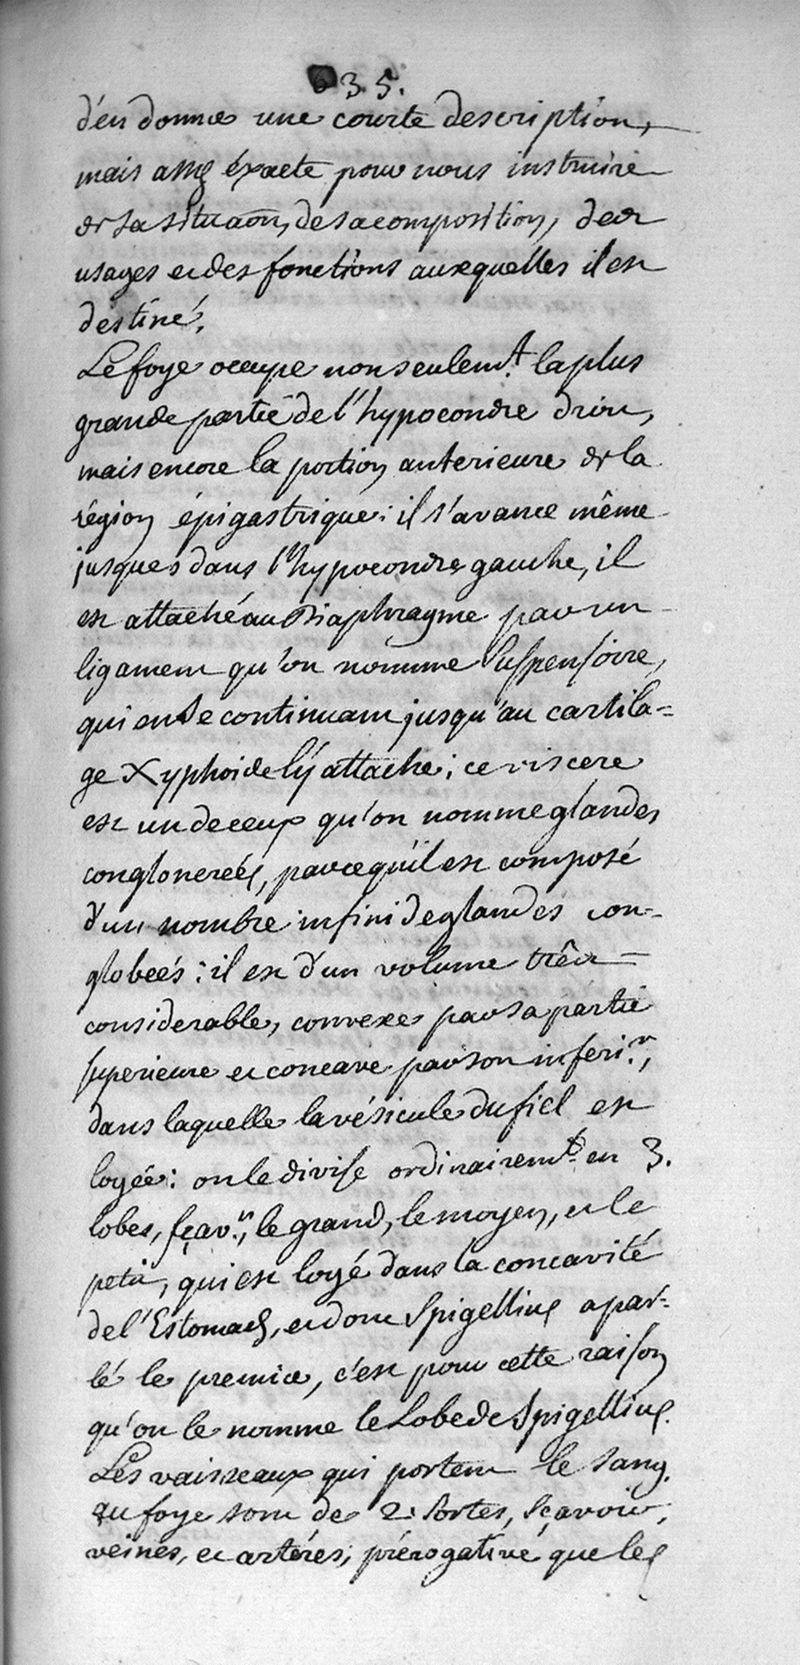 635.
d'en donner une courte description,
mais assez éxacte pour nous instruire
de sa situaõn, de sa composition, des
usages et des fonctions auxquelles il est
destiné.
Le foye occupe non seulem.t la plus
grande partie de l'hypocondre droit,
mais encore la portion anterieure de la
région épigastrique: il s'avance même
jusques dans l'hypocondre gauche, il
est attaché au Diaphragme par un
ligament qu'on nomme suspensoire,
qui en se continuant jusqu'au cartila=
ge Xyphoide l'y attache; ce viscere
est un de ceux qu'on nomme glandes
conglonereés, parce qu'il est composé
d'un nombre infini de glandes con-
globeés: il est d'un volume três
considerable, convexe par sa partie
superieure et concave par son inferi.r,
dans laquelle la vésicule du fiel est
logée: on le divise ordinairem.t en 3.
lobes, sçav.r, le grand, le moyen, et le
petit, qui est logé dans la concavité
de l'Estomach, et dont Spigellius a par-
lé le premier, c'est pour cette raison
qu'on le nomme le Lobe de Spigellius.
Les vaisseaux qui portent le sang
au foye sont de 2. sortes, sçavoir,
veines, et artéres; prérogative que les